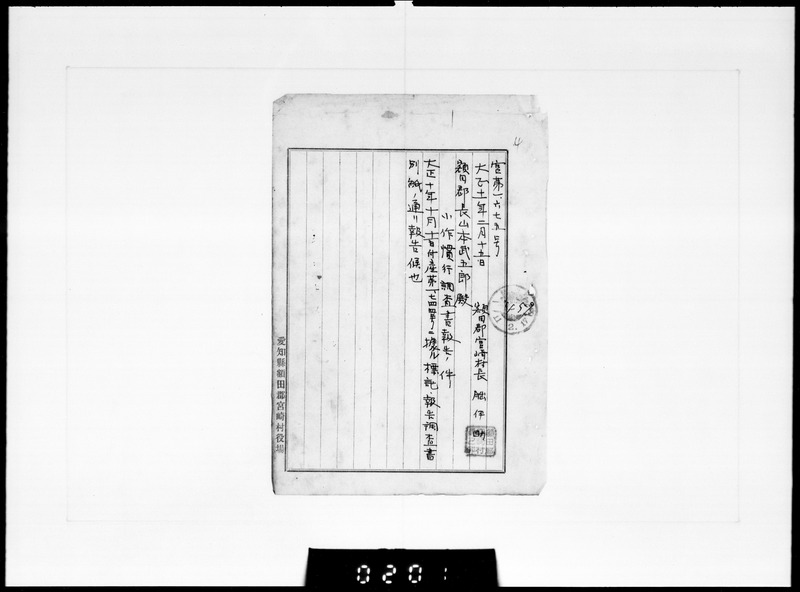 4
宮第一六七五号
大正十一年二月十五日
額田郡宮崎村長
額田郡長山本武五郎殿
小作慣行調査書報告ノ件
大正十年十月十日付産第一七四四号ニ據ル標記ノ報告調査書
別紙ノ通リ報告候也
愛知縣額田郡宮崎村役場
0201